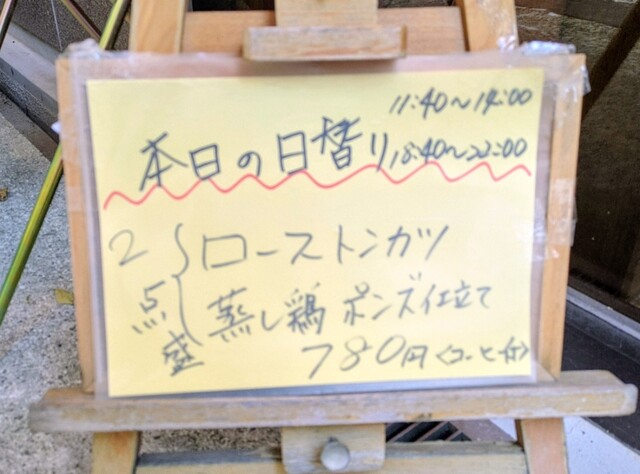 11:40～14:00
本日の日替り 18:40～22:00
2点盛
ローストンカツ
蒸し鶏 ポンズ仕立て
780円〈コーヒー付〉